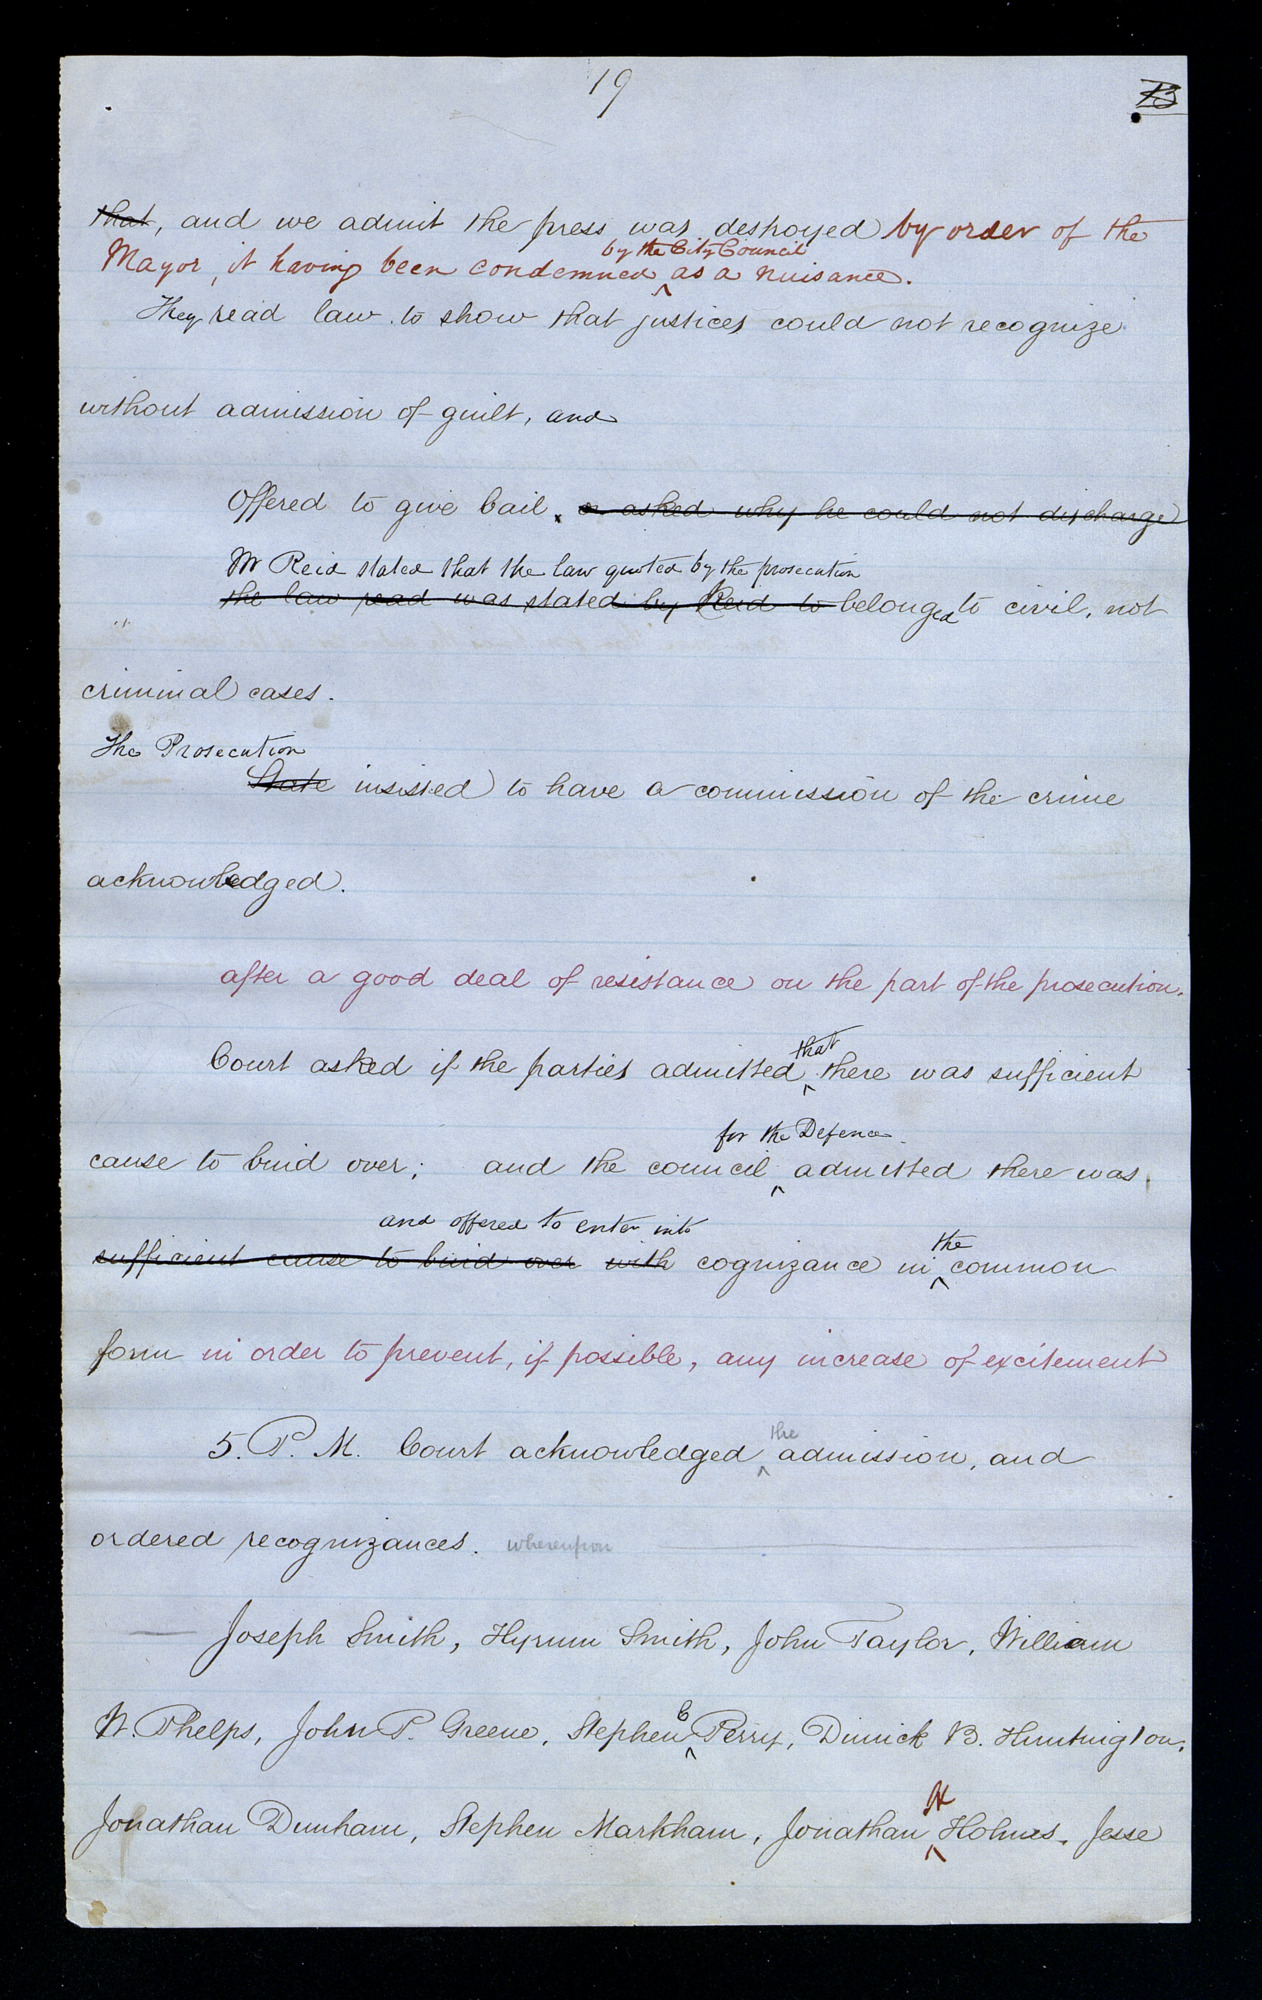 19
13
that, and we admit the press was destroyed by order of the
by the City Council
Mayor, it having been condemned ^ as a nuisance.
They read law to show that justices could not recognize
without admission of guilt, and
Offered to give bail. or asked why he could not discharge
Mr Reid stated that the law quoted by the prosecution
the law read was stated by Reid to belonged to civil, not
criminal cases.
The Prosecution
State insisted to have a commission of the crime
acknowledged.
after a good deal of resistance on the part of the prosecution.
that
Court asked if the parties admitted ^ there was sufficient
for the Defence.
cause to bind over; and the council ^ admitted there was
and offered to enter into
the
sufficient cause to bind over with cognizance in ^ common
form in order to prevent, if possible, any increase of excitement
the
5. P. M. Court acknowledged ^ admission, and
ordered recognizances. whereupon
Joseph Smith, Hyrum Smith, John Taylor, William
C
W. Phelps, John P. Greene, Stephen ^ Perry, Dimick B. Huntington,
H
Jonathan Dunham, Stephen Markham, Jonathan ^ Holmes, Jesse